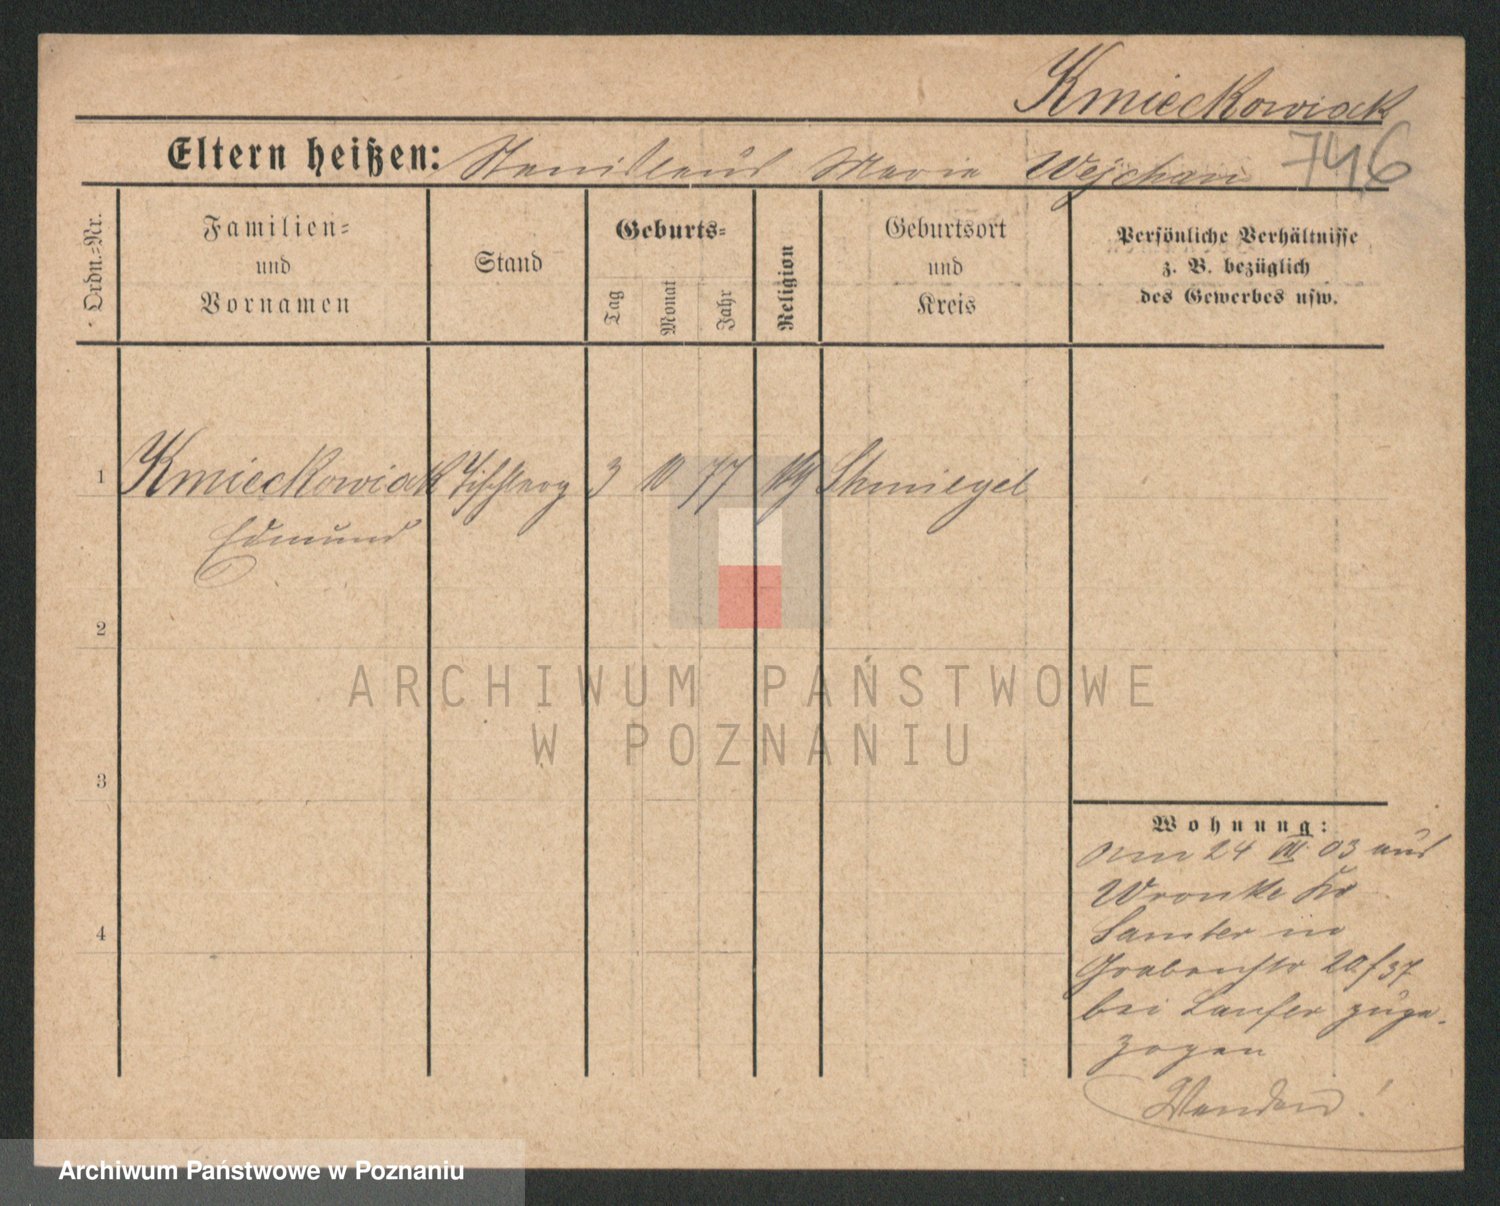 Kmieckowiak
746
Eltern heißen: Stanislaus Marie Wejchan
Ordn.-Nr.
Familien-
und
Vornamen
Stand
Geburts-
Tag
Monat
Jahr
Religion
Geburtsort
und
Kreis
Persönliche Verhältnisse
z. B. bezüglich
des Gewerbes usw.
1 Kmieckowiak 3 10 77 Schmiegel
Edmund
2
3
4
ARCHIWUM PAŃSTWOWE
W POZNANIU
Wohnung:
24 III 03 aus
Wronke Kr
Samter in
Grabenstr 20/37
bei Laufer zuge-
zogen
Wenden!
Archiwum Państwowe w Poznaniu